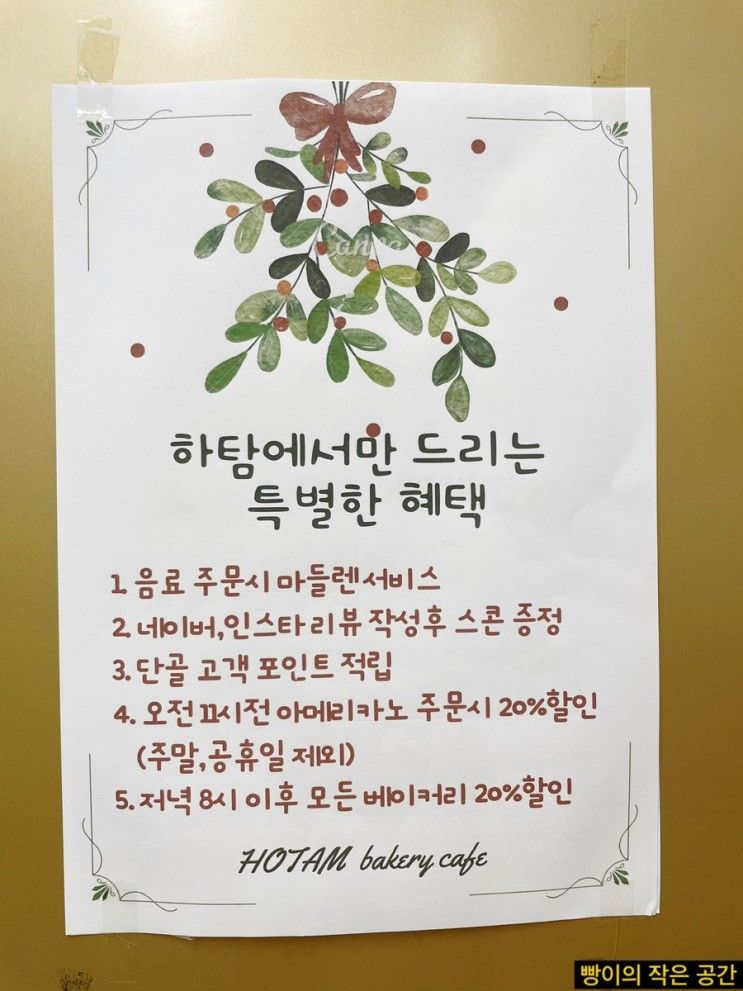 Canva
하탐에서만 드리는
특별한 혜택
1. 음료 주문시 마들렌서비스
2. 네이버,인스타리뷰 작성후 스콘 증정
3. 단골 고객 포인트 적립
4. 오전 11시전 아메리카노 주문시 20%할인
(주말,공휴일 제외)
5. 저녁 8시 이후 모든 베이커리 20%할인
HOTAM bakery cafe
빵이의 작은 공간